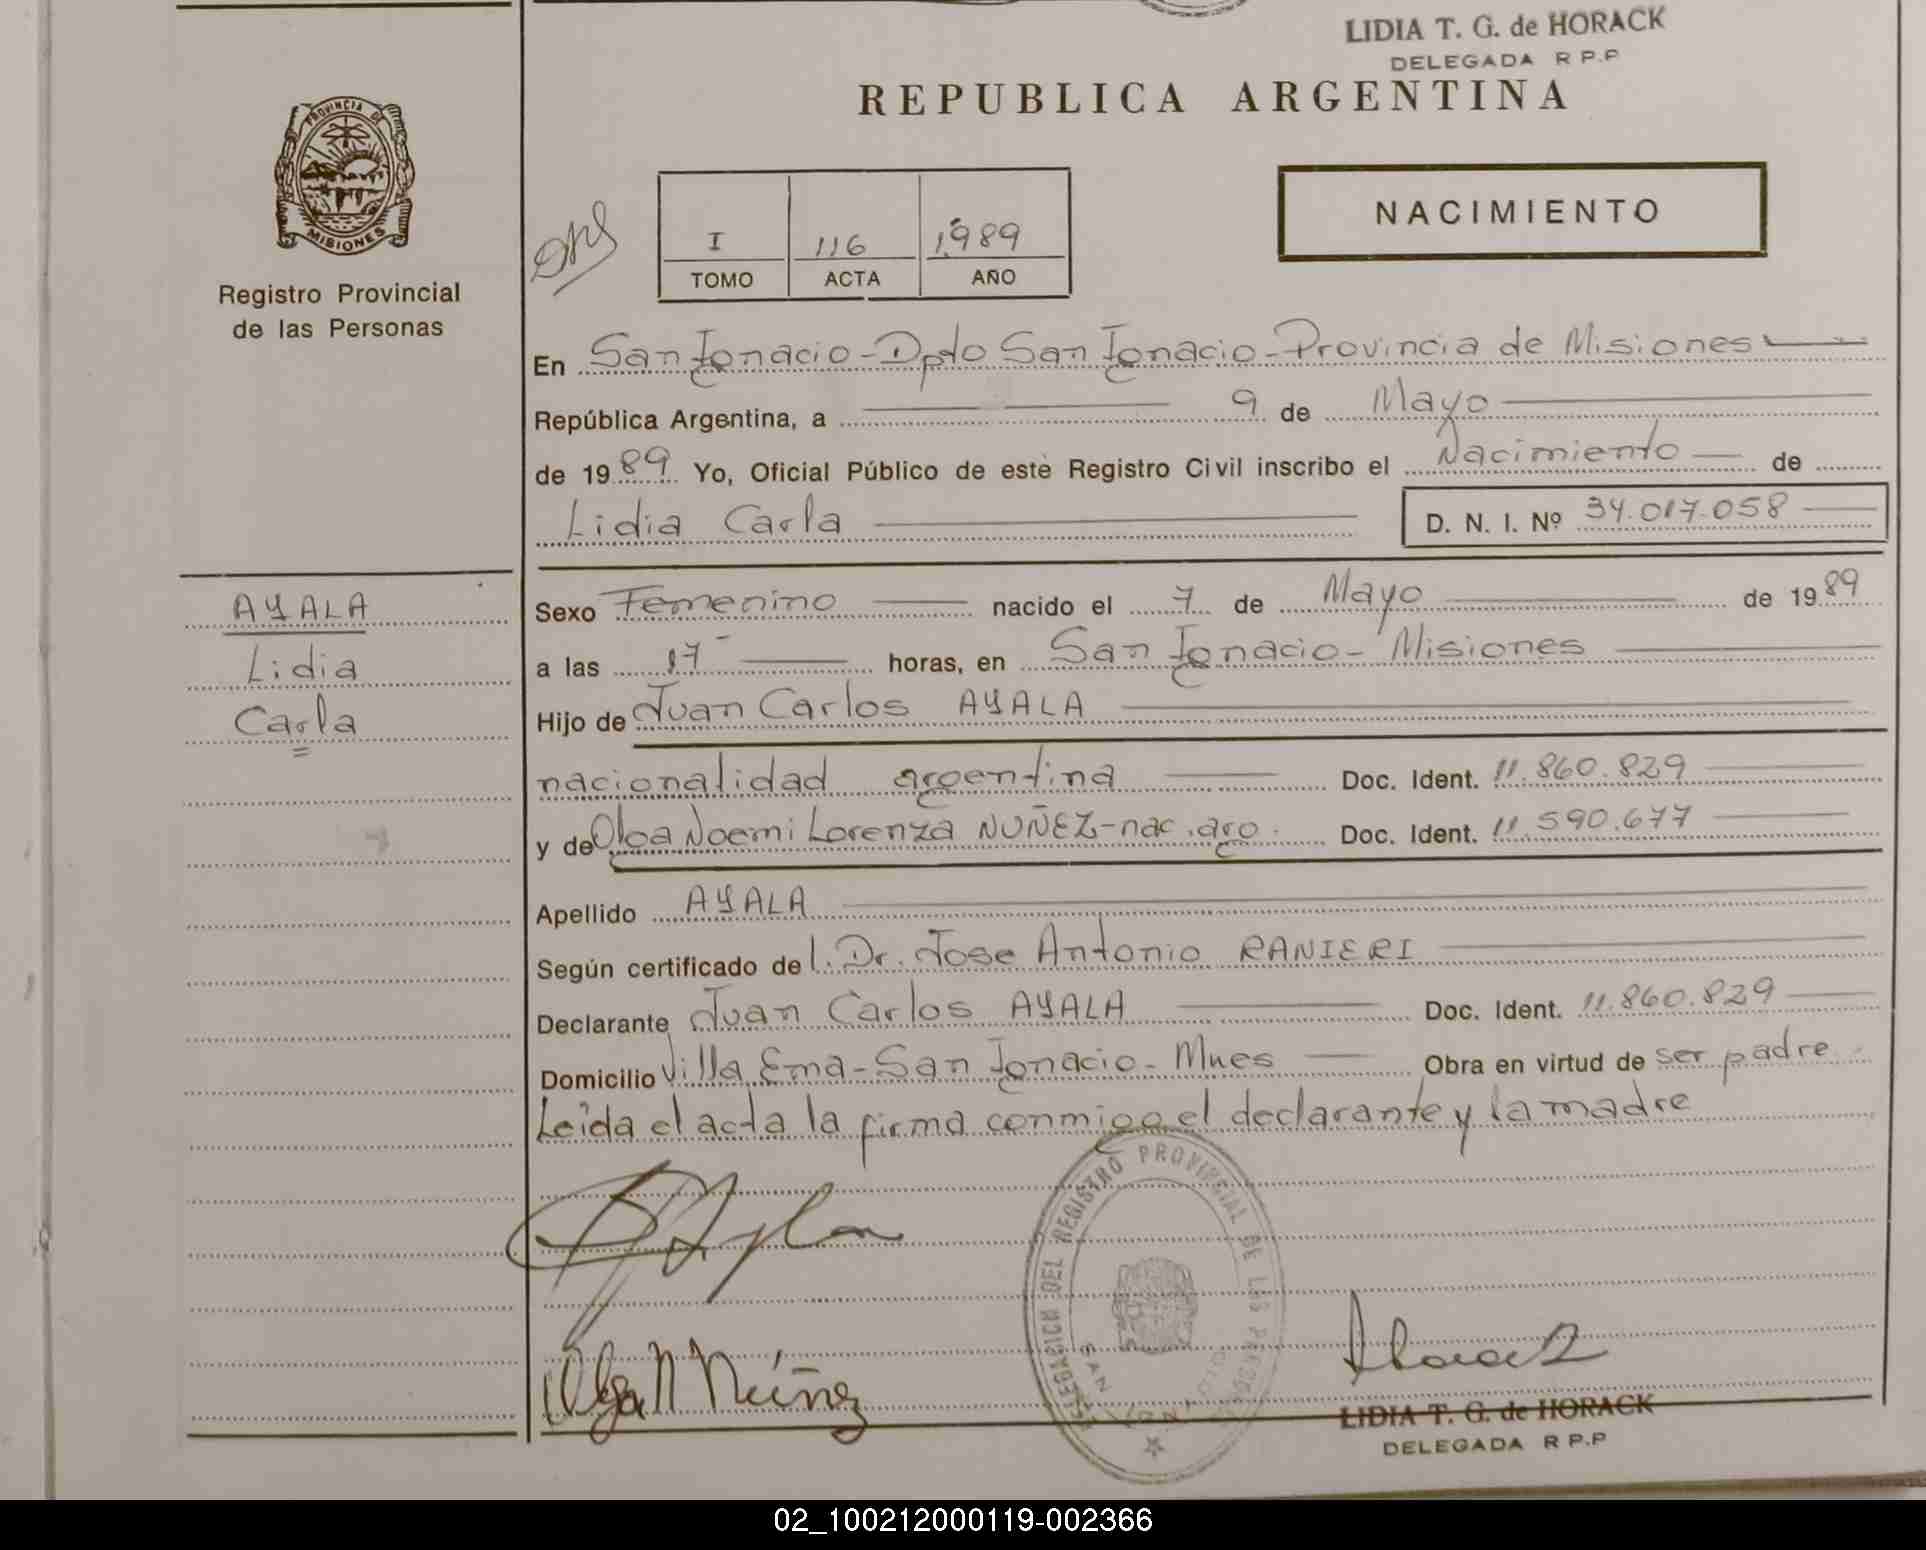 LIDIA T. G. de HORACK
DELEGADA R P.P
REPUBLICA ARGENTINA
PROVINCIA DE
MISIONES
Registro Provincial
de las Personas
I 116 1989
TOMO ACTA AÑO
NACIMIENTO
En San Ignacio - Dpto San Ignacio - Provincia de Misiones
República Argentina, a 9 de Mayo
de 1989 Yo, Oficial Público de este Registro Civil inscribo el Nacimiento de
Lidia Carla D. N. I. Nº 34.017.058
AYALA
Lidia
Carla
Sexo Femenino nacido el 7 de Mayo de 1989
a las 17 horas, en San Ignacio - Misiones
Hijo de Juan Carlos AYALA
nacionalidad argentina Doc. Ident. 11.860.829
y de Olga Noemi Lorenza NUÑEZ - nac. arg. Doc. Ident. 11.590.677
Apellido AYALA
Según certificado del Dr. Jose Antonio RANIERI
Declarante Juan Carlos AYALA Doc. Ident. 11.860.829
Domicilio Villa Ema - San Ignacio - Mnes Obra en virtud de ser padre
Leída el acta la firma conmigo el declarante y la madre
DELEGACION DEL REGISTRO PROVINCIAL DE LAS PERSONAS
SAN IGNACIO
Olga N Núñez
Horack
LIDIA T. G. de HORACK
DELEGADA R P.P
02_100212000119-002366